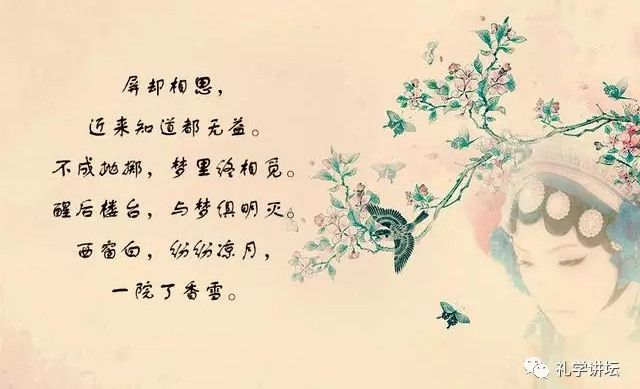 屏却相思，
近来知道都无益。
不成抛掷，梦里终相觅。
醒后楼台，与梦俱明灭。
西窗白，纷纷凉月，
一院丁香雪。
礼学讲坛